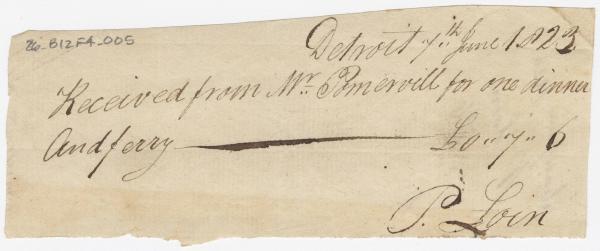 26_B12F4_005
Detroit 7"th June 1823
Received from Mr. Pomervill for one dinner
And ferry — £0"7"6
P. Loin